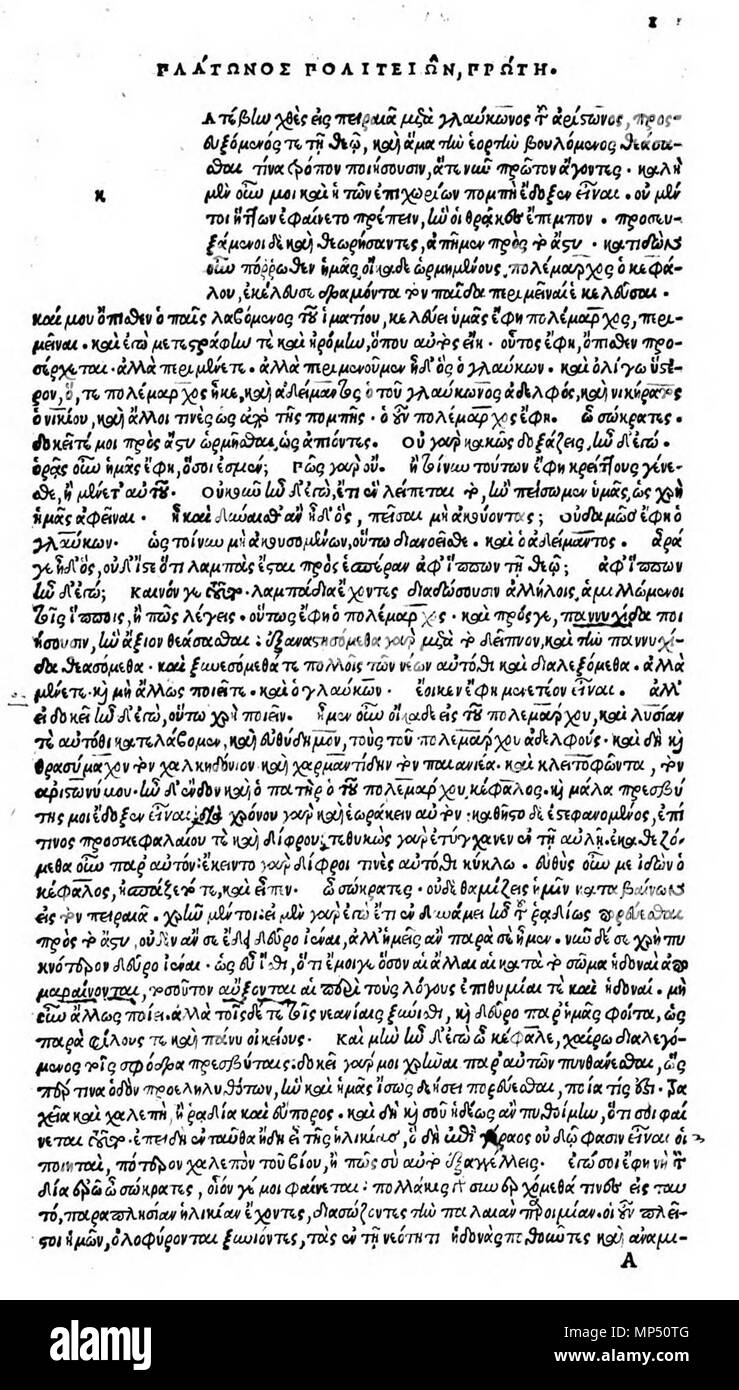 1
ΠΛΑ´ΤΩΝΟΣ ΠΟΛΙΤΕΙΩ͂Ν, ΠΡΩ´ΤΗ.
κ
Ατέβην χθὲς εἰς πειραιᾶ μετὰ γλαύκωνος τοῦ ἀρίστωνος, προσ-
ευξόμενός τε τῇ θεῷ, καὶ ἅμα τὴν ἑορτὴν βουλόμενος θεάσα-
σθαι τίνα τρόπον ποιήσουσιν, ἅτε νῦν πρῶτον ἄγοντες. καλὴ
μὲν οὖν μοι καὶ ἡ τῶν ἐπιχωρίων πομπὴ ἔδοξεν εἶναι. οὐ μέν
τοι ἧττον ἐφαίνετο πρέπειν, ἣν οἱ θρᾷκες ἔπεμπον. προσευ-
ξάμενοι δὲ καὶ θεωρήσαντες, ἀπῇμεν πρὸς τὸ ἄστυ. κατιδὼν
οὖν πόρρωθεν ἡμᾶς οἴκαδε ὡρμημένους πολέμαρχος ὁ κεφά-
λου, ἐκέλευσε δραμόντα τὸν παῖδα περιμεῖναί ἑ κελεῦσαι.
καί μου ὄπισθεν ὁ παῖς λαβόμενος τοῦ ἱματίου, κελεύει ὑμᾶς ἔφη πολέμαρχος, περι-
μεῖναι. καὶ ἐγὼ μετεστράφην τε καὶ ἠρόμην, ὅπου αὐτὸς εἴη. οὗτος ἔφη, ὄπισθεν προ-
σέρχεται. ἀλλὰ περιμένετε. ἀλλὰ περιμενοῦμεν ἦ δ' ὃς ὁ γλαύκων. καὶ ὀλίγῳ ὕστε-
ρον, ὅ, τε πολέμαρχος ἧκε, καὶ ἀδείμαντος ὁ τοῦ γλαύκωνος ἀδελφός, καὶ νικήρατος
ὁ νικίου, καὶ ἄλλοι τινὲς ὡς ἀπὸ τῆς πομπῆς. ὁ οὖν πολέμαρχος ἔφη. ὦ σώκρατες.
δοκεῖτέ μοι πρὸς ἄστυ ὡρμῆσθαι, ὡς ἀπιόντες. Οὐ γὰρ κακῶς δοξάζεις, ἦν δ' ἐγώ.
ὁρᾷς οὖν ἡμᾶς ἔφη, ὅσοι ἐσμέν; Πῶς γὰρ οὔ. ἢ τοίνυν τούτων ἔφη κρείττους γένε-
σθε, ἢ μένετ' αὐτοῦ. Οὐκοῦν ἦν δ' ἐγώ, ἔτι ἓν λείπεται τὸ, ἢν πείσωμεν ὑμᾶς, ὡς χρὴ
ἡμᾶς ἀφεῖναι. ἦ καὶ δύναισθ' ἂν ἦ δ' ὃς, πεῖσαι μὴ ἀκούοντας; Οὐδαμῶς ἔφη ὁ
γλαύκων. ὡς τοίνυν μὴ ἀκουσομένων, οὕτω διανοεῖσθε. καὶ ὁ ἀδείμαντος. ἆρά
γε ἦ δ' ὃς, οὐδ' ἴστε ὅτι λαμπὰς ἔσται πρὸς ἑσπέραν ἀφ' ἵππων τῇ θεῷ; ἀφ' ἵππων
ἦν δ' ἐγώ; Καινόν γε τοῦτο. λαμπάδια ἔχοντες διαδώσουσιν ἀλλήλοις, ἁμιλλώμενοι
τοῖς ἵπποις, ἢ πῶς λέγεις. οὕτως ἔφη ὁ πολέμαρχος. καὶ πρός γε, παννυχίδα ποι
ήσουσιν, ἣν ἄξιον θεάσασθαι: ἐξαναστησόμεθα γὰρ μετὰ τὸ δεῖπνον, καὶ τὴν παννυχί-
δα θεασόμεθα. καὶ ξυνεσόμεθά τε πολλοῖς τῶν νέων αὐτόθι καὶ διαλεξόμεθα. ἀλλὰ
μένετε. καὶ μὴ ἄλλως ποιεῖτε. καὶ ὁ γλαύκων. ἔοικεν ἔφη μενετέον εἶναι. ἀλλ'
εἰ δοκεῖ ἦν δ' ἐγώ, οὕτω χρὴ ποιεῖν. ᾖμεν οὖν οἴκαδε εἰς τοῦ πολεμάρχου, καὶ λυσίαν
τε αὐτόθι κατελάβομεν, καὶ εὐθύδημον, τοὺς τοῦ πολεμάρχου ἀδελφούς. καὶ δὴ καὶ
θρασύμαχον τὸν χαλκηδόνιον καὶ χαρμαντίδην τὸν παιανιέα. καὶ κλειτοφῶντα, τὸν
ἀριστωνύμου. ἦν δ' ἔνδον καὶ ὁ πατὴρ ὁ τοῦ πολεμάρχου κέφαλος. καὶ μάλα πρεσβύ
της μοι ἔδοξεν εἶναι. διὰ χρόνου γὰρ καὶ ἑωράκειν αὐτόν: καθῆστο δὲ ἐστεφανωμένος, ἐπί
τινος προσκεφαλαίου τε καὶ δίφρου: τεθυκὼς γὰρ ἐτύγχανεν ἐν τῇ αὐλῇ. ἐκαθεζό-
μεθα οὖν παρ' αὐτόν: ἔκειντο γὰρ δίφροι τινὲς αὐτόθι κύκλῳ. εὐθὺς οὖν με ἰδὼν ὁ
κέφαλος, ἠσπάζετό τε, καὶ εἶπεν. ὦ σώκρατες. οὐδὲ θαμίζεις ἡμῖν καταβαίνων
εἰς τὸν πειραιᾶ. χρῆν μέντοι: εἰ μὲν γὰρ ἐγὼ ἔτι ἐν δυνάμει ἦν τοῦ ῥαδίως πορεύεσθαι
πρὸς τὸ ἄστυ, οὐδὲν ἄν σε ἔδει δεῦρο ἰέναι, ἀλλ' ἡμεῖς ἂν παρὰ σὲ ᾖμεν. νῦν δέ σε χρὴ πυ
κνότερον δεῦρο ἰέναι. ὡς εὖ ἴσθι, ὅτι ἔμοιγε ὅσον αἱ ἄλλαι αἱ κατὰ τὸ σῶμα ἡδοναὶ ἀπο
μαραίνονται, τοσοῦτον αὔξονται αἱ περὶ τοὺς λόγους ἐπιθυμίαι τε καὶ ἡδοναί. μὴ
οὖν ἄλλως ποίει. ἀλλὰ τοῖσδέ τε τοῖς νεανίαις ξύνισθι, καὶ δεῦρο παρ' ἡμᾶς φοίτα, ὡς
παρὰ φίλους τε καὶ πάνυ οἰκείους. Καὶ μὴν ἦν δ' ἐγὼ ὦ κέφαλε, χαίρω διαλεγό-
μενος τοῖς σφόδρα πρεσβύταις: δοκεῖ γάρ μοι χρῆναι παρ' αὐτῶν πυνθάνεσθαι, ὥς
περ τινα ὁδὸν προεληλυθότων, ἣν καὶ ἡμᾶς ἴσως δεήσει πορεύεσθαι, ποία τίς ἐστι. τρα
χεῖα καὶ χαλεπὴ, ἢ ῥαδία καὶ εὔπορος. καὶ δὴ καὶ σοῦ ἡδέως ἂν πυθοίμην, ὅτι σοι φαί
νεται τοῦτο. ἐπειδὴ ἐνταῦθα ἤδη εἶ τῆς ἡλικίας, ὃ δὴ ἐπὶ γήραος οὐδῷ φασιν εἶναι οἱ
ποιηταὶ, πότερον χαλεπὸν τοῦ βίου, ἢ πῶς σὺ αὐτὸ ἐξαγγέλλεις. ἐγώ σοι ἔφη νὴ τὸν
δία ἐρῶ ὦ σώκρατες, οἷόν γέ μοι φαίνεται: πολλάκις γὰρ συνερχόμεθά τινες εἰς ταυ
τό, παραπλησίαν ἡλικίαν ἔχοντες, διασώζοντες τὴν παλαιὰν παροιμίαν. οἱ οὖν πλεῖ-
στοι ἡμῶν, ὀλοφύρονται ξυνιόντες, τὰς ἐν τῇ νεότητι ἡδονὰς ποθοῦντες καὶ ἀναμι-
A
alamy
Image ID: MP50TG
www.alamy.com